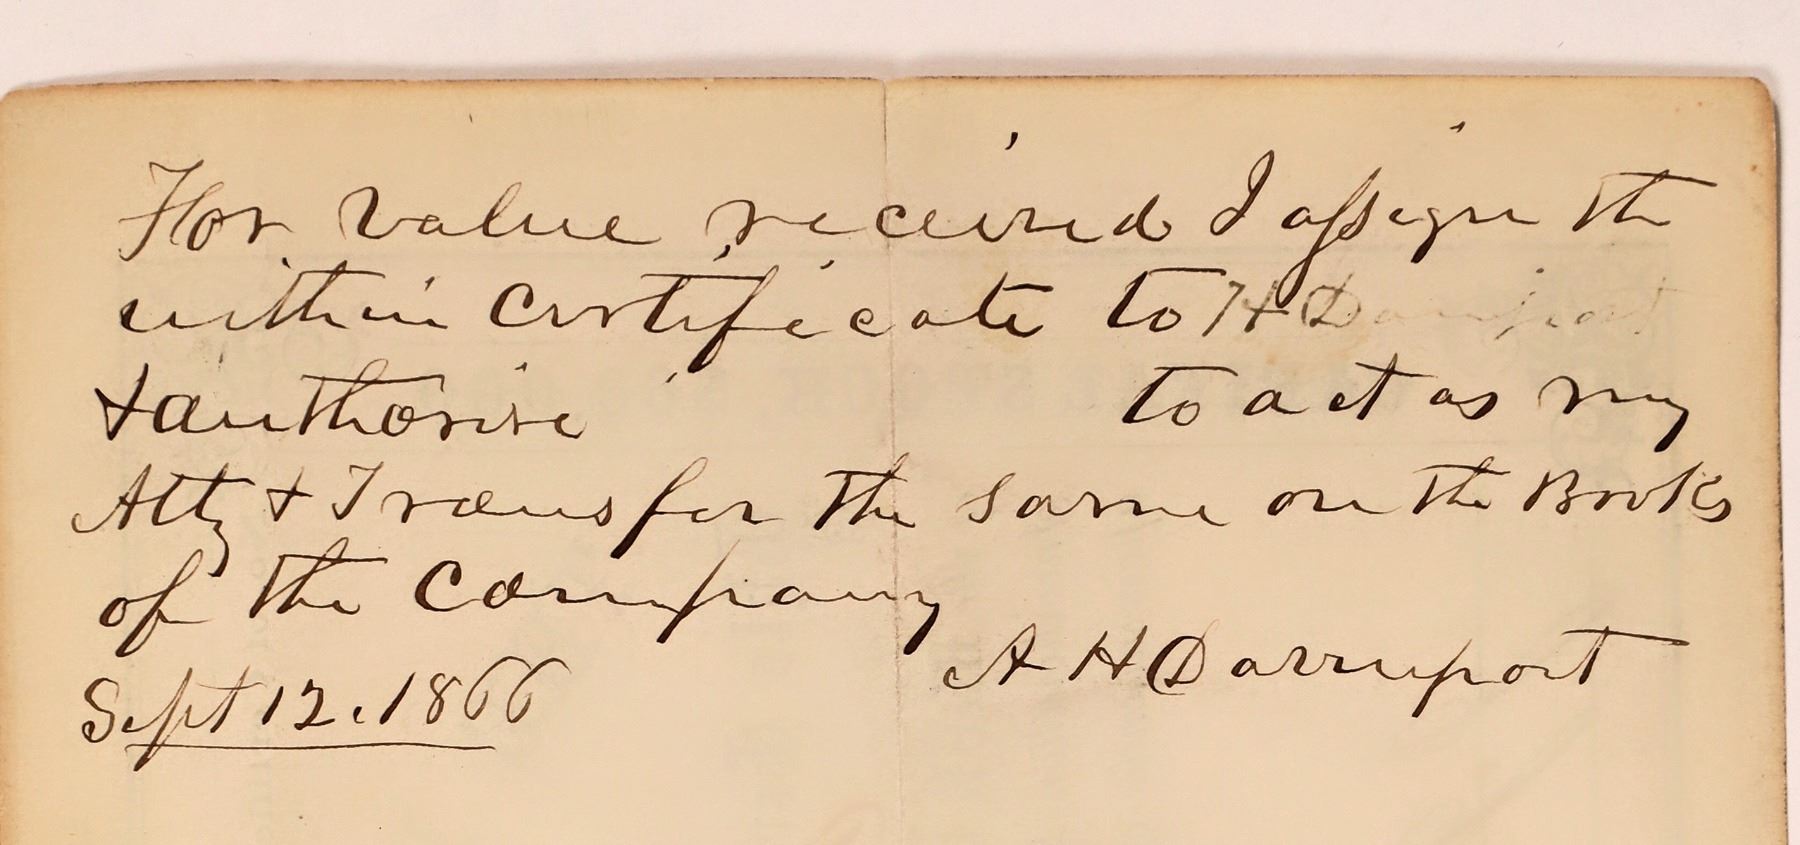 For value received I assign the
within certificate to H Davenport
& authorise to act as my
Atty & Transfer the same on the Books
of the Company
A H Davenport
Sept 12, 1866